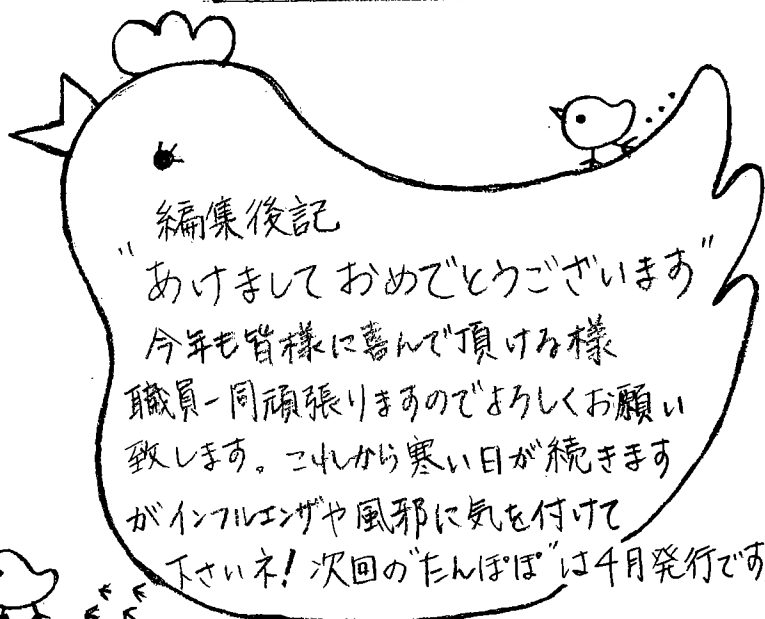 編集後記
"あけましておめでとうございます"
今年も皆様に喜んで頂ける様
職員一同頑張りますのでよろしくお願い
致します。これから寒い日が続きます
がインフルエンザや風邪に気を付けて
下さいネ!次回の"たんぽぽ"は4月発行です